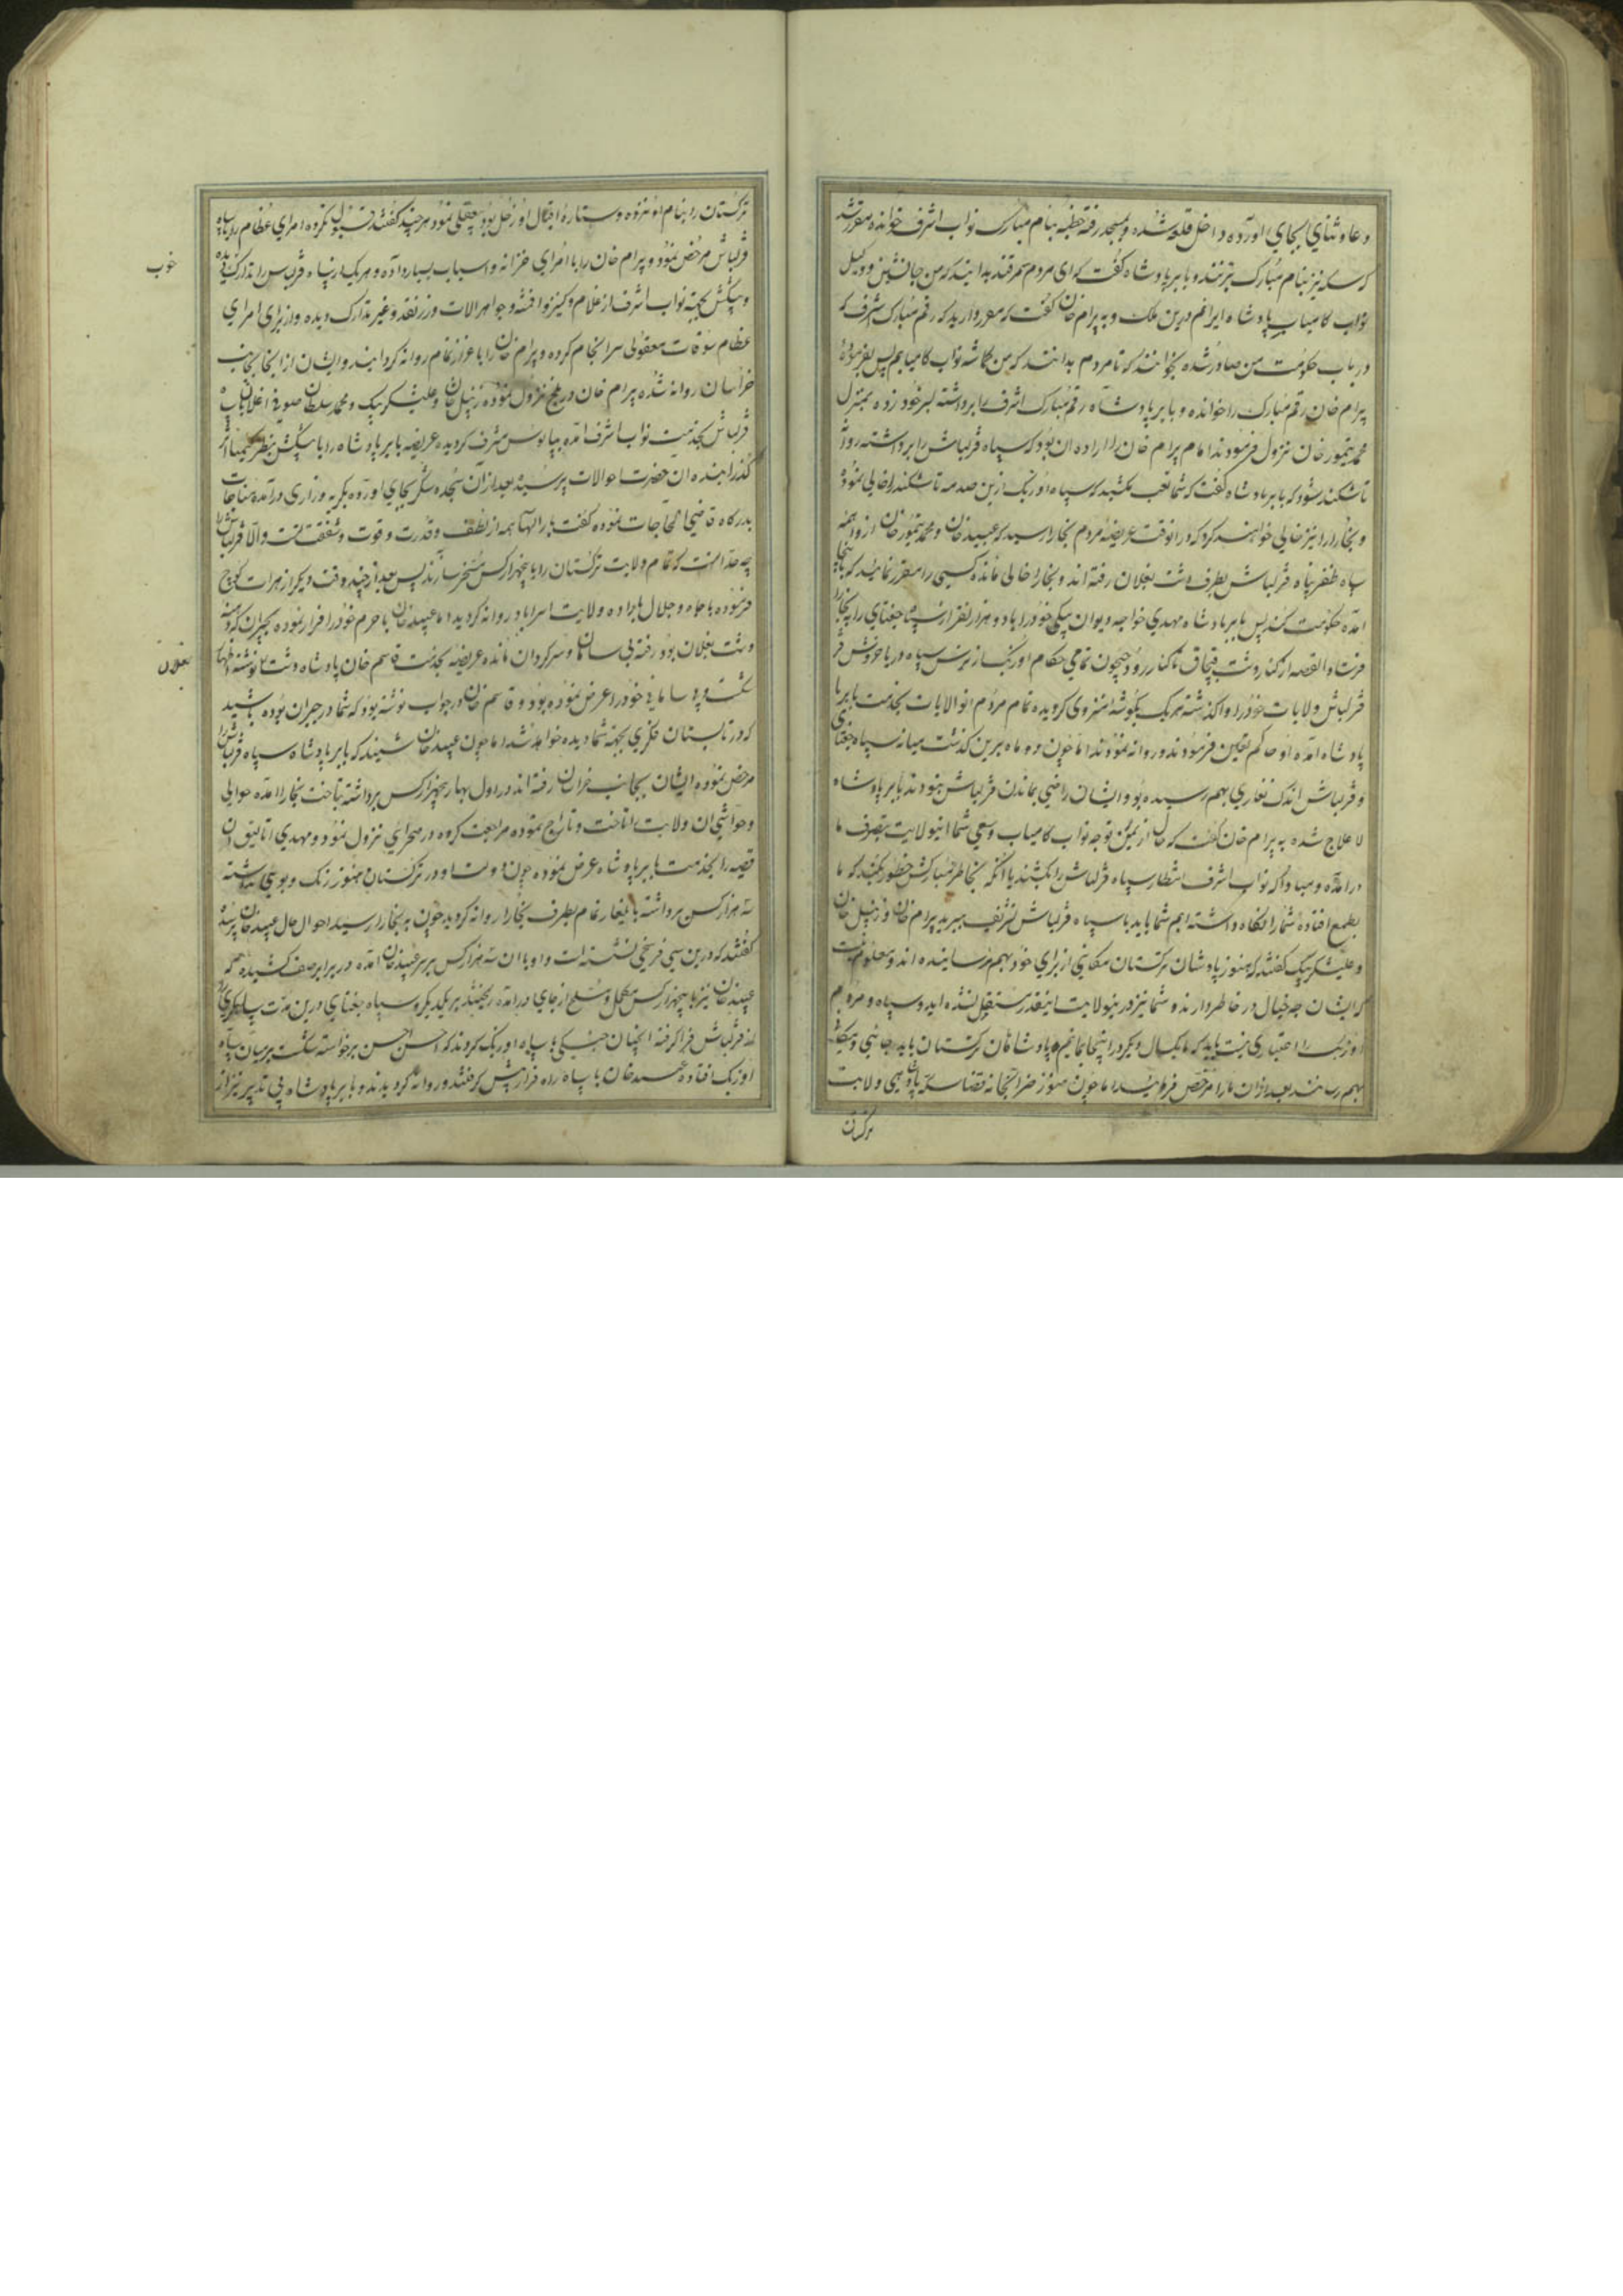 دعا و ثنای بجای آورده داخل قلعه شده و بمسجد رفته خطبه بنام مبارک نواب اشرف خوانده مقرر شد
که سکه نیز بنام مبارک بزنند و بابر پادشاه گفت که ای مردم سمرقند بدانید که من جانشین و وکیل
نواب کامیاب پادشاه ایرانم درین ملک و به پیرام خان گفت که مقرر دارید که رقم مبارک اشرف که
در باب حکومت من صادر شده بخوانند که تا مردم بدانند که من کماشته نواب کامیابم پس بفرموده
پیرام خان رقم مبارک را خوانده و بابر پادشاه رقم مبارک اشرف را برداشته بسر خود زده بمنزل
محمد تیمور خان نزول فرمودند اما پیرام خان را اراده ان بود که سپاه قزلباش را برداشته روانه
تاشکند شود که بابر پادشاه گفت که شما تعب مکشید که سپاه اوزبک ازین صدمه تاشکند را خالی نموده
و بخارا را نیز خالی خواهند کرد که در انوقت عریضه مردم بخارا رسید که عبید خان و محمد تیمور خان از واهمه
سپاه ظفر پناه قزلباش بطرف دشت بغلان رفته اند و بخارا خالی مانده کسی را مقرر نمایند که باینجا
امده حکومت کند پس بابر پادشاه مهدی خواجه دیوان بیکی خود را با دو هزار نفر از سپاه جغتای را به بخارا
فرستاد القصه از کنار دشت قپچاق تا کنار رود جیحون تمامی حکام اوزبک از ترس سپاه دریا خروش
قزلباش ولایات خود را واگذاشته هر یک بگوشه منزوی گردیده تمام مردم انولایات بخدمت بابر
پادشاه امده او حاکم تعیین فرمودند و روانه نمودند اما چون دو ماه برین گذشت میانه سپاه جغتای
و قزلباش اندک نقاری بهم رسیده بود و ایشان راضی بماندن قزلباش نبودند بابر پادشاه
لا علاج شده به پیرام خان گفت که حال از یمن توجه نواب کامیاب و سعی شما اینولایت بتصرف ما
درامده و مبادا که نواب اشرف انتظار سپاه قزلباش را بکشند یا انکه بخاطر مبارکش خطور کند که ما
بطمع افتاده شما را نکاه داشته ایم شما باید با سپاه قزلباش تشریف ببرید پیرام خان و زینل خان
و علیشکر بیک گفتند که هنوز پادشاهان ترکستان مکانی از برای خود بهم نرسانیده اند و معلوم نیست
که ایشان چه خیال در خاطر دارند و شما نیز درینولایت اینقدر مستقل نشده اید و سپاه و مردم
اوزبک را اعتباری نیست باید که ما یکسال دیکر در اینجا بمانیم و پادشاهان ترکستان باید جائی و مکانی
بهم رسانند بعد از ان ما را مرخص فرمائید اما چون هنوز ولایت
ترکستان
ترکستان را بنام او نزده و ستاره اقبال او زحل بود بیعقلی نمود هر چند گفتند قبول نکرده امرای عظام را با سپاه
قزلباش مرخص نمود و پیرام خان را با امرای خزانه و اسباب بسیار داده و هر یک از سپاه قزلباش را تدارک دیده
و پیشکش بجهة نواب اشرف از غلام و کنیز و اقمشه و جواهرالات و زر نقد و غیر تدارک دیده و از برای امرای
عظام سوقات معقولی سرانجام کرده و پیرام خان را با عزاز تمام روانه گردانید و ایشان از انجا بجانب
خراسان روانه شده پیرام خان در بلخ نزول نموده زینل خان و علیشکر بیک و محمد سلطان صوفی اغلان با سپاه
قزلباش بخدمت نواب اشرف امده بپابوس مشرف گردیده عریضه بابر پادشاه را با پیشکش بنظر
گذرانیده ان حضرت احوالات پرسیده بعد از آن سجده شکر بجای آورده بگریه و زاری درآمده مناجات
بدرگاه قاضی الحاجات نموده گفت بار الها همه از لطف و قدرت و قوت و شفقت تست والا قزلباش را
چه حد انست که تمام ولایت ترکستان را با پنجهزار کس مسخر سازند پس بعد از چند وقت دیکر از هرات کوچ
فرموده با جاه و جلال با راده ولایت استراباد روانه گردید اما عبید خان با حرم خود را فرار نموده
دشت بغلان بود رفته بی سامان و سرگردان مانده عریضه بخدمت قاسم خان پادشاه دشت نوشته
شکست و بی سامانی خود را عرض نموده بود و قاسم خان در جواب نوشته بود که شما در جیران بوده باشید
که در تابستان فکری بجهة شما دیده خواهد شد اما چون عبید خان شنید که بابر پادشاه سپاه قزلباش را
مرخص نموده و ایشان بجانب خراسان رفته اند در اول بهار پنجهزار کس برداشته بتاخت بخارا امده حوالی
و حواشی ان ولایت را تاخت و تاراج نموده مراجعت کرده در صحرای نزول نمود و مهدی اتالیق ان
قضیه را بخدمت بابر پادشاه عرض نموده چون دولت او در ترکستان هنوز رنک و بوی نداشته
سه هزار کس برداشته بایلغار تمام بطرف بخارا روانه گردید چون به بخارا رسید احوال حال عبید خان پرسیده
گفتند که درین سی فرسخی نشسته است و او با ان سه هزار کس بر سر عبید خان امده در برابر صف کشیده که
عبید خان نیز با پنجهزار کس مکمل و مسلح از جای درامده ریختند بر یکدیگر و سپاه جغتای درین مدت سپاهکری را
از قزلباش فرا گرفته انچنان جنکی با سپاه اوزبک کردند که احسن احسن برخواسته شکست بر میان سپاه
اوزبک افتاده عبید خان با سپاه راه فرار پیش گرفتند و روانه گردیدند و بابر پادشاه بی تدبیر نیز از
خوب
بغلان